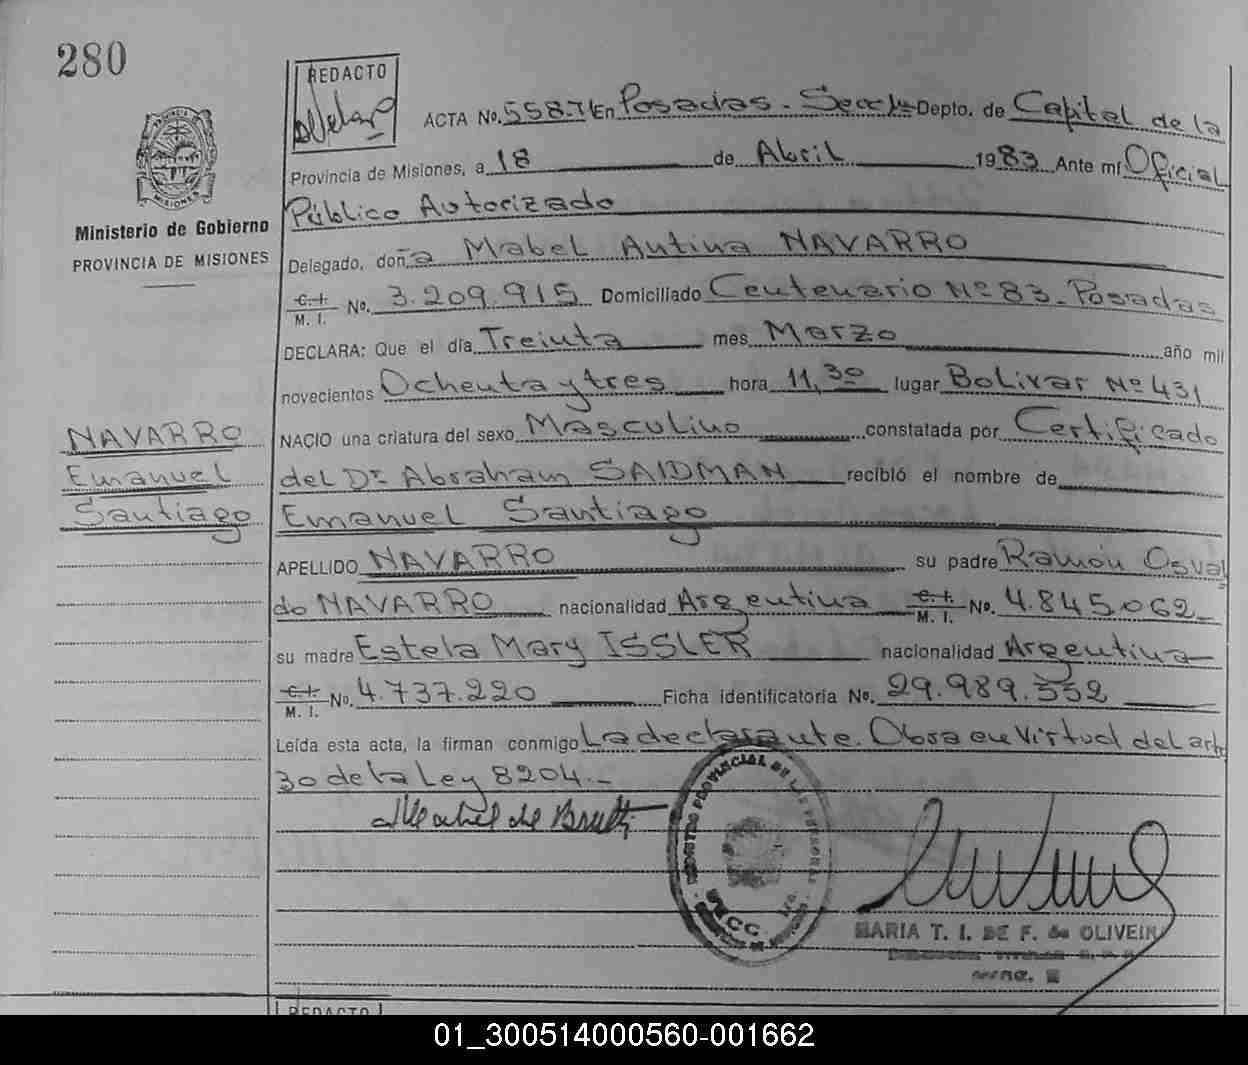 280
REDACTO
PROVINCIA DE
MISIONES
Ministerio de Gobierno
PROVINCIA DE MISIONES
ACTA No. 558.7 En Posadas - Secc 1ª Depto. de Capital de la
Provincia de Misiones, a 18 de Abril 1983 Ante mí Oficial
Público Autorizado
Delegado, doña Mabel Antina NAVARRO
C. I.
M. I. No. 3.209.915 Domiciliado Centenario Nº 83 - Posadas
DECLARA: Que el día Treinta mes Marzo año mil
novecientos Ochenta y tres hora 11,30 lugar Bolivar Nº 431
NACIO una criatura del sexo Masculino constatada por Certificado
del Dr Abraham SAIDMAN recibió el nombre de
Emanuel Santiago
APELLIDO NAVARRO su padre Ramón Osval
do NAVARRO nacionalidad Argentina C. I.
M. I. No. 4.845.062
su madre Estela Mary ISSLER nacionalidad Argentina
C. I.
M. I. No. 4.737.220 Ficha identificatoria No. 29.989.552
Leída esta acta, la firman conmigo La declarante. Obra en virtud del art.
30 de la Ley 8204.-
NAVARRO
Emanuel
Santiago
REGISTRO PROVINCIAL DE LAS PERSONAS
SECC. 1ra.
MARIA T. I. DE F. de OLIVEIRA
REDACTO
01_300514000560-001662